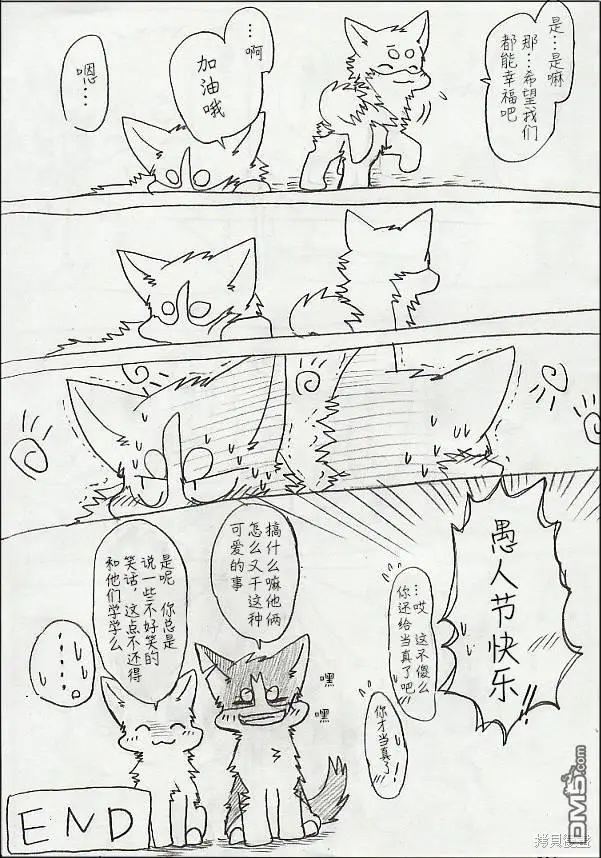 是…是嘛
那…希望我们
都能幸福吧
…啊
加油哦
嗯…
愚人节快乐!!
…哎 这不傻么
你还给当真了吧
你才当真了!
搞什么嘛他俩
怎么又干这种
可爱的事
嘿
嘿
是呢 你总是
说一些不好笑的
笑话，这点不还得
和他们学学么
……
END
DM5.com
拷贝漫画